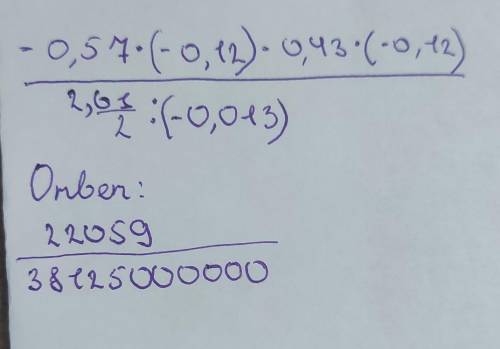 - 0,57·(-0,12)- 0,43·(-0,12)
2,01
2 :(-0,013)
Ответ:
22059
38125000000